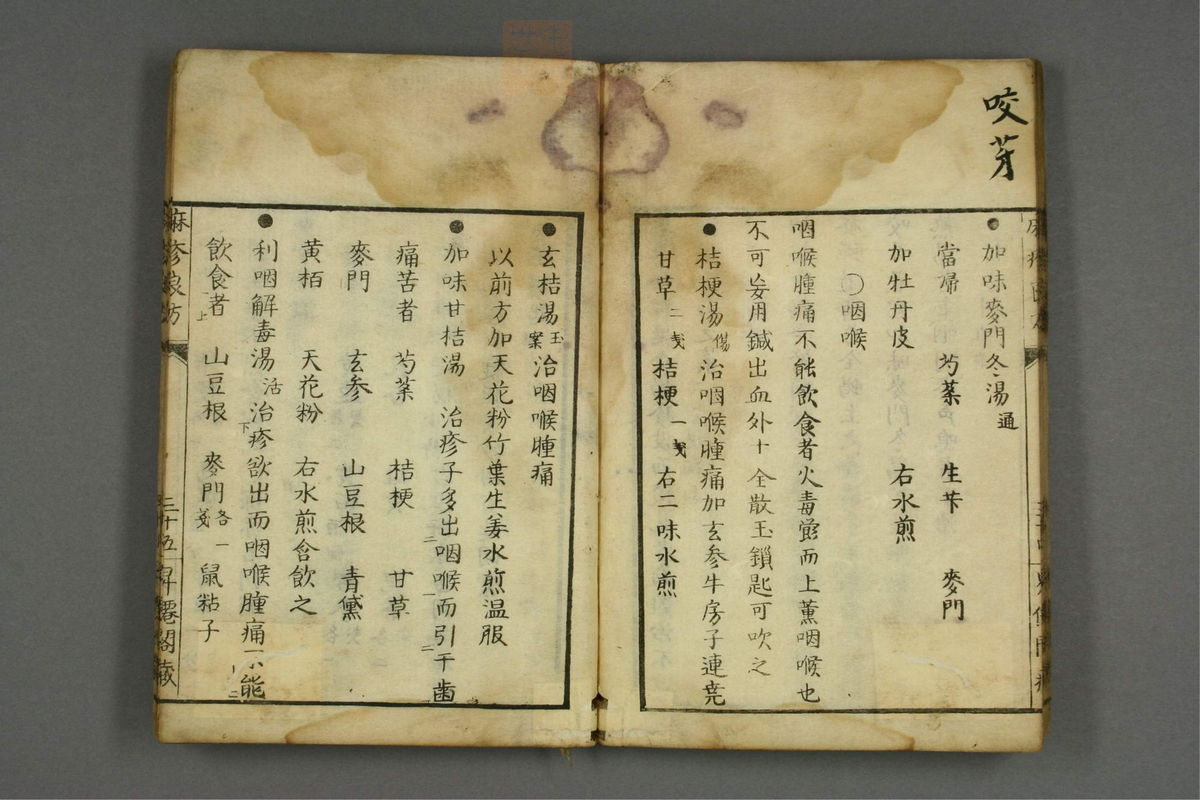 咬芽
加味麥門冬湯 通
當帰 芍薬 生芐 麥門
加牡丹皮 右水煎
〇咽喉
咽喉腫痛不能飲食者火毒欝而上薫咽喉也
不可妄用鍼出血外十全散玉鎖匙可吹之
●桔梗湯 傷 治咽喉腫痛加玄参牛房子連堯
甘草 二戔 桔梗 一戔 右二味水煎
●玄桔湯 玉案 治咽喉腫痛
以前方加天花粉竹葉生姜水煎温服
●加味甘桔湯 治疹子多出咽喉而引干歯
痛苦者 芍薬 桔梗 甘草
麥門 玄参 山豆根 青黛
黄栢 天花粉 右水煎含飲之
●利咽解毒湯 活 治疹欲出而咽喉腫痛不能
飲食者 山豆根 麥門 各一戔 鼠粘子
麻疹良方
二十五